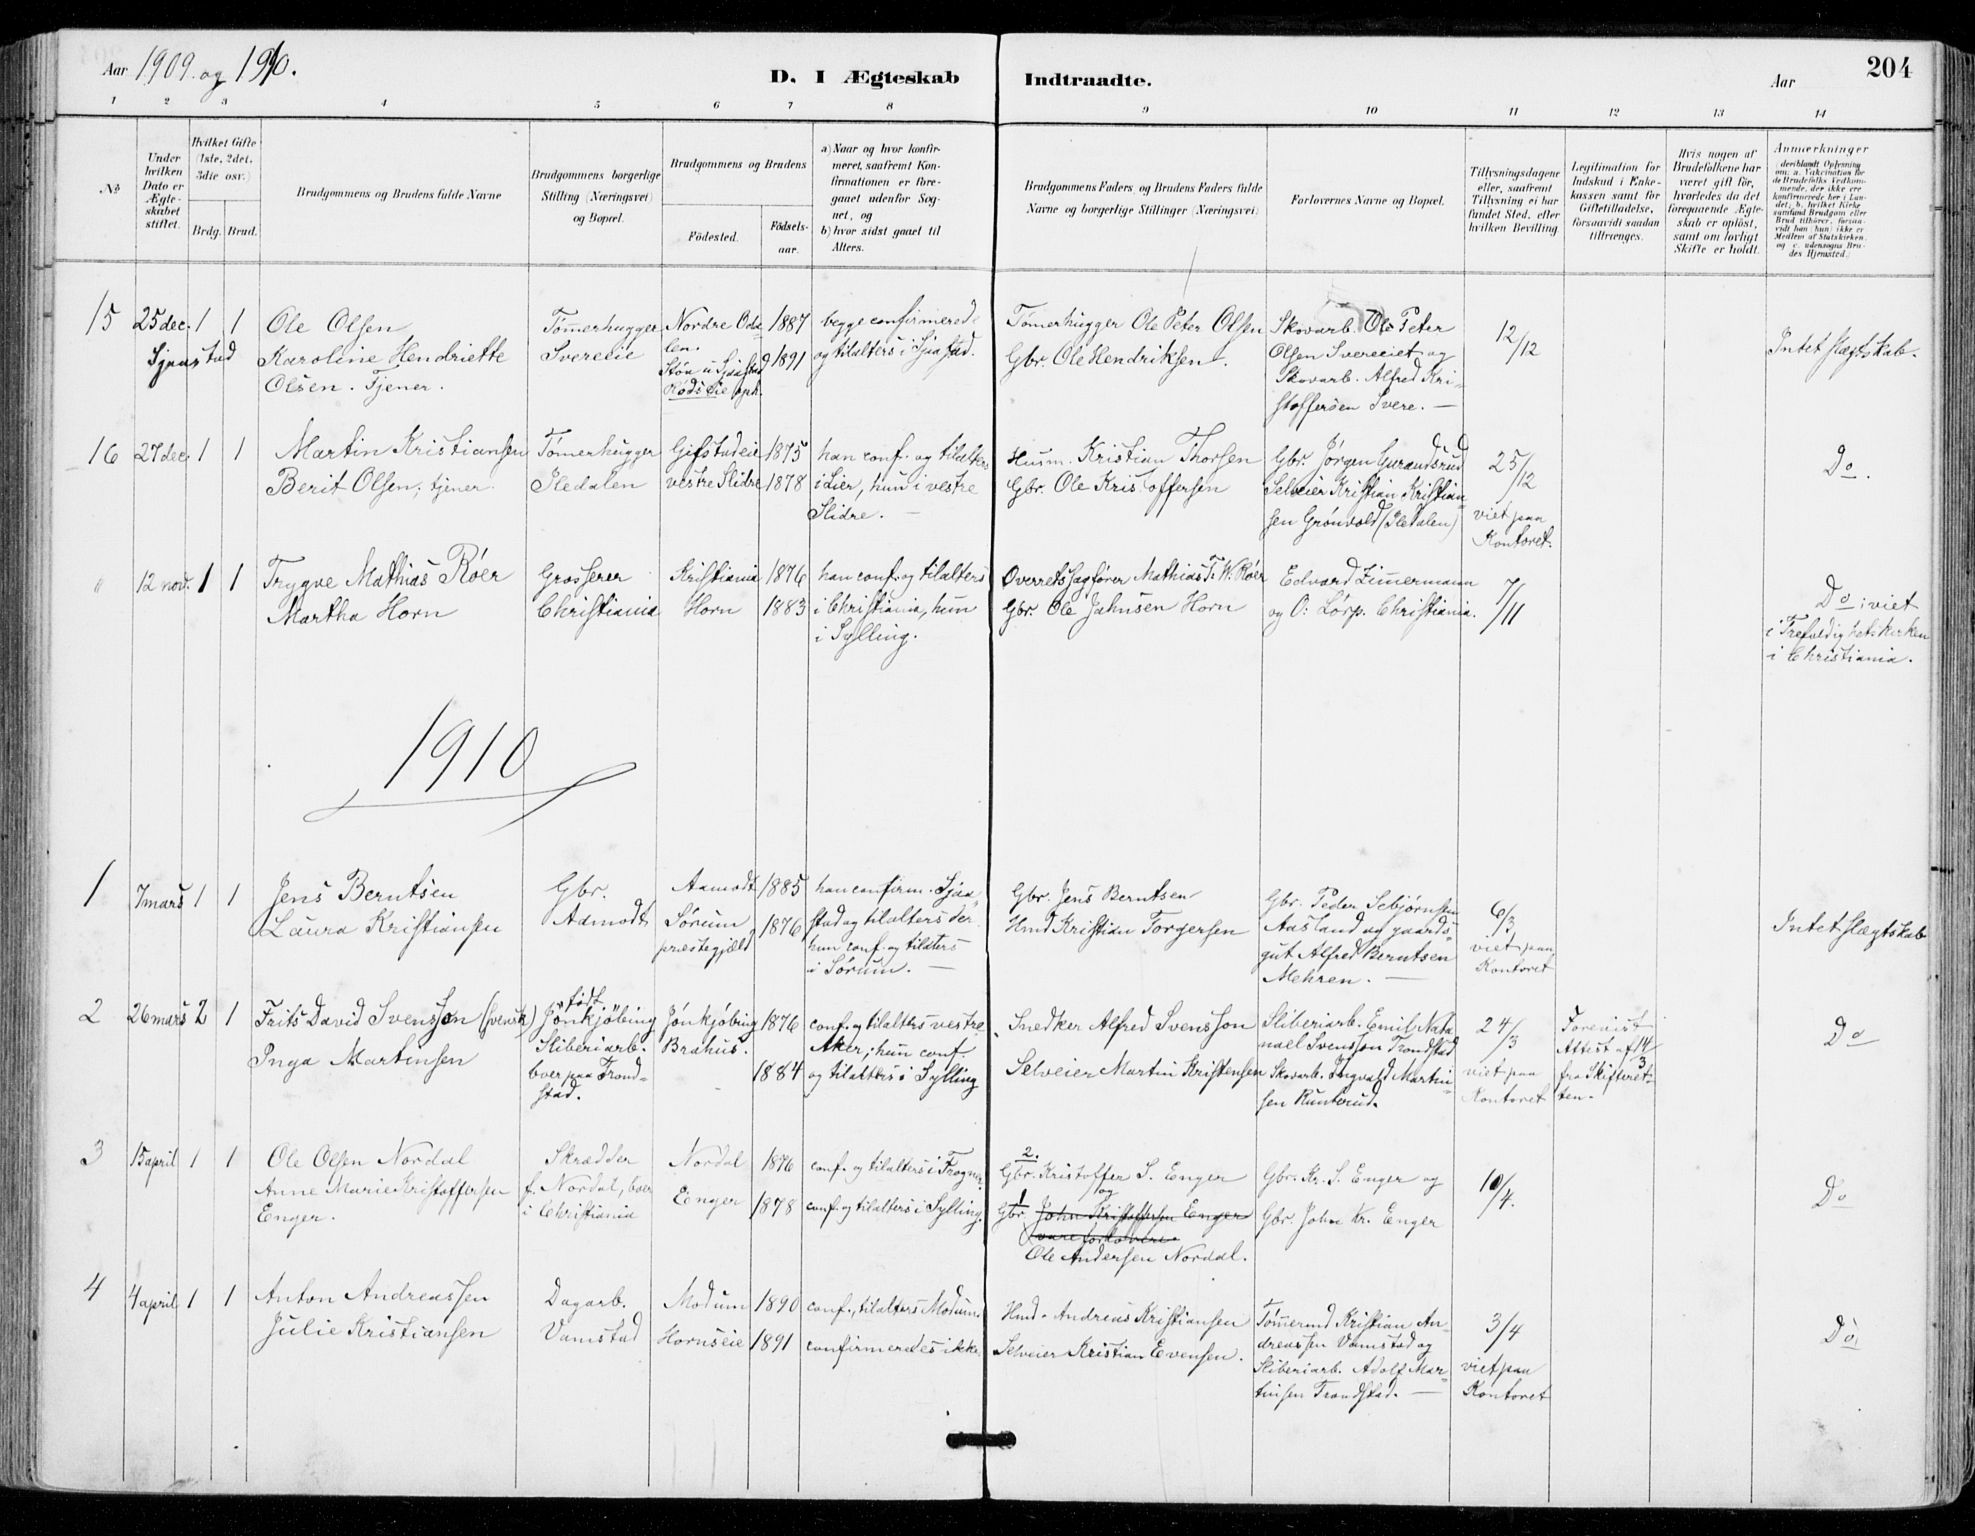 Aar 1909 og 1910.
D. I Ægteskab Indtraadte.
Aar
204
1 2 3 4 5 6 7 8 9 10 11 12 13 14
No
Under hvilken Dato er Ægteskabet stiftet.
Hvilket Gifte (1ste, 2det, 3die osv.)
Brdg. Brud.
Brudgommens og Brudens fulde Navne
Brudgommens borgerlige Stilling (Næringsvei) og Bopæl.
Brudgommens og Brudens
Fødested. Fødselsaar.
a) Naar og hvor konfirmeret, saafremt Konfirmationen er foregaaet udenfor Sognet, og
b) hvor sidst gaaet til Alters.
Brudgommens Faders og Brudens Faders fulde Navne og borgerlige Stillinger (Næringsvei)
Forlovernes Navne og Bopæl.
Tillysningsdagene eller, saafremt Tillysning ei har fundet Sted, efter hvilken Bevilling
Legitimation for Indskud i Enkekassen samt for Giftetilladelse, forsaavidt saadan tiltrænges.
Hvis nogen af Brudefolkene har været gift før, hvorledes da det foregaaende Ægteskab er opløst, samt om lovligt Skifte er holdt.
Anmerkninger
(deriblandt Oplysning om: a. Vakcination for de Brudefolks Vedkommende, der ikke ere konfirmerede her i Landet; b. hvilket Kirkesamfund Brudgom eller Brud tilhører, forsaavidt han (hun) ikke er Medlem af Statskirken, og c. udensogns Brudes Hjemsted.)
15 25 dec. Sjaastad 1 1
Ole Olsen
Karoline Hendriette
Olsen. Tjener.
Tømerhugger
Svereeie
Nordre Oda
len.
Støa u Sjaastad
1887
1891
begge confirmered
og tilalters i Sjaastad.
Tømerhugger Ole Peter Olsen
Gbr. Ole Hendriksen.
Skovarb. Ole Peter
Olsen Svereeiet og
Skovarb. Alfred Kri-
stoffersen Svere. —
12/12
Intet slægtskab.
16 27 dec 1 1
Martin Kristiansen
Berit Olsen, tjener
Tømerhugger
Iledalen
Gifstadeie
vestre Slidre
1875
1878
han conf. og tilalters
i Lier, hun i vestre
Slidre. —
Husm. Kristian Thorsen
Gbr. Ole Kristoffersen
Gbr. Jørgen Gurandsrud
Selveier Kristian Kristian
sen Grønvold (Iledalen)
25/12
viet paa
Kontoret.
Do.
" 12 nov. 1 1
Trygve Mathias Röer
Martha Horn
Grosserer
Christiania
Kristiania
Horn
1876
1883
han conf. og tilalters
i Christiania, hun
i Sylling.
Overretssagfører Mathias T. W. Röer
Gbr. Ole Jahnsen Horn
Edvard Zimmermann
og O: Lørp. Christiania.
7/11
Do: viet
i Trefoldighetskirken
i Christiania.
1910
1 7 mars 1 1
Jens Berntsen
Laura Kristiansen
Gbr.
Aamodt
Aamodt
Sørum
præstegjæld
1885
1876
han confirm. Sjaa-
stad og tilalters der
hun conf. og tilalters
i Sørum. —
Gbr. Jens Berntsen
Hmd Kristian Torgersen
Gbr. Peder Sebjørnsen
Aasland og gaards-
gut Alfred Berntsen
Mehren. —
6/3
viet paa
Kontoret
Intet slægtskab
2 26 mars 2 1
Frits David Svensson (svensk)
Inga Martinsen
født
Jönkjöbing
Sliberiarb.
boer paa Trond-
stad.
Jónkjóbing
Brahus.
1876
1884
conf. og tilalters vestre
Aker; hun conf.
og tilalters i Sylling
Snedker Alfred Svensson
Selveier Martin Kristensen
Sliberiarb. Emil Nata
nael Svensson Trondstad
Skovarb. Ingvald Martin-
sen Runterud.
24/3
viet paa
Kontoret
Forevist
Attest af 14/3
fra Skifteret-
ten.
Do
3 15 april 1 1
Ole Olsen Nordal
Anne Marie Kristoffersen
Enger.
Skrædder
f. Nordal, boer
i Christiania
Nordal
Eenger
1876
1878
conf. og tilalters i Fragner.
conf. og tilalters i Sylling.
2.
Gbr. Kristoffer S. Enger
og
1
Gbr. John Kristoffersen Enger
vare forlovere
Ole Andersen Nordal.
Gbr. Kr. S. Enger og
Gbr. John Kr. Enger
10/4.
Do
4 4 april 1 1
Anton Andreassen
Julie Kristiansen
Dagarb.
Vamstad
Modum
Hornseie
1890
1891
conf., tilalters Modum.
confirmeredes ikke
Hmd. Andreas Kristiansen
Selveier Kristian Evensen.
Tømermd Kristian An-
dreassen Vamstad og
Sliberiarb. Adolf Mar-
tinsen Trondstad. —
3/4
viet paa
Kontoret
Do